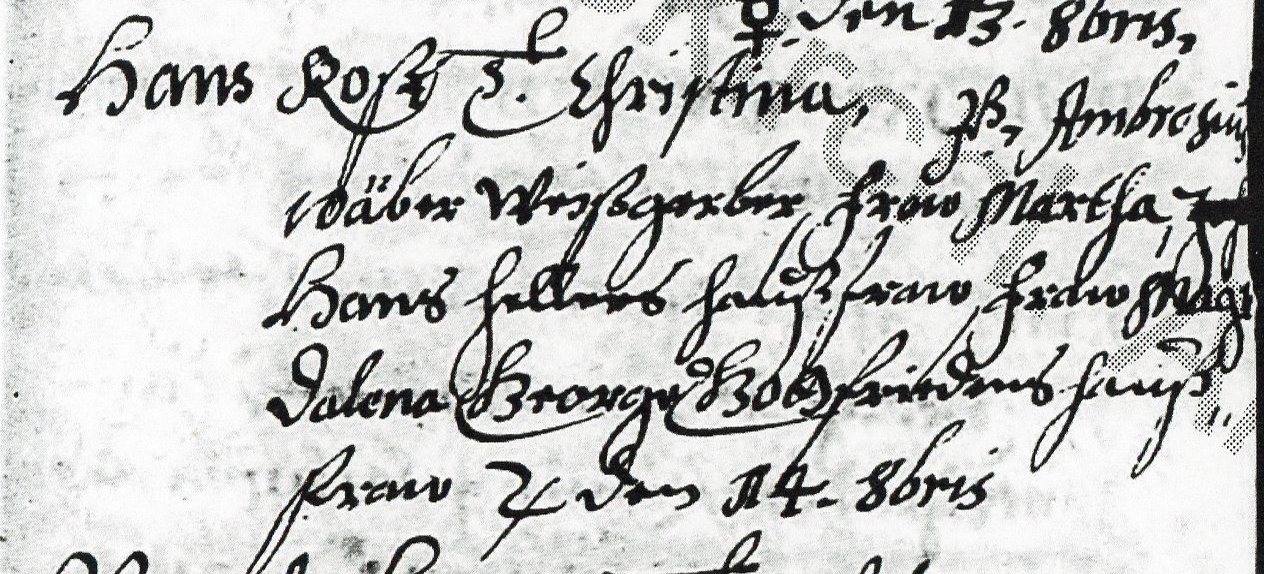 ♀. den 13. 8bris,
Hans Rost T. Christina,
P. Ambrosius
Wäber Weißgerber, Fraw Martha,
Hans Hellers haußfraw, Fraw Mag
dalena George Gottfriedens hauß„
fraw ♃ den 14. 8bris